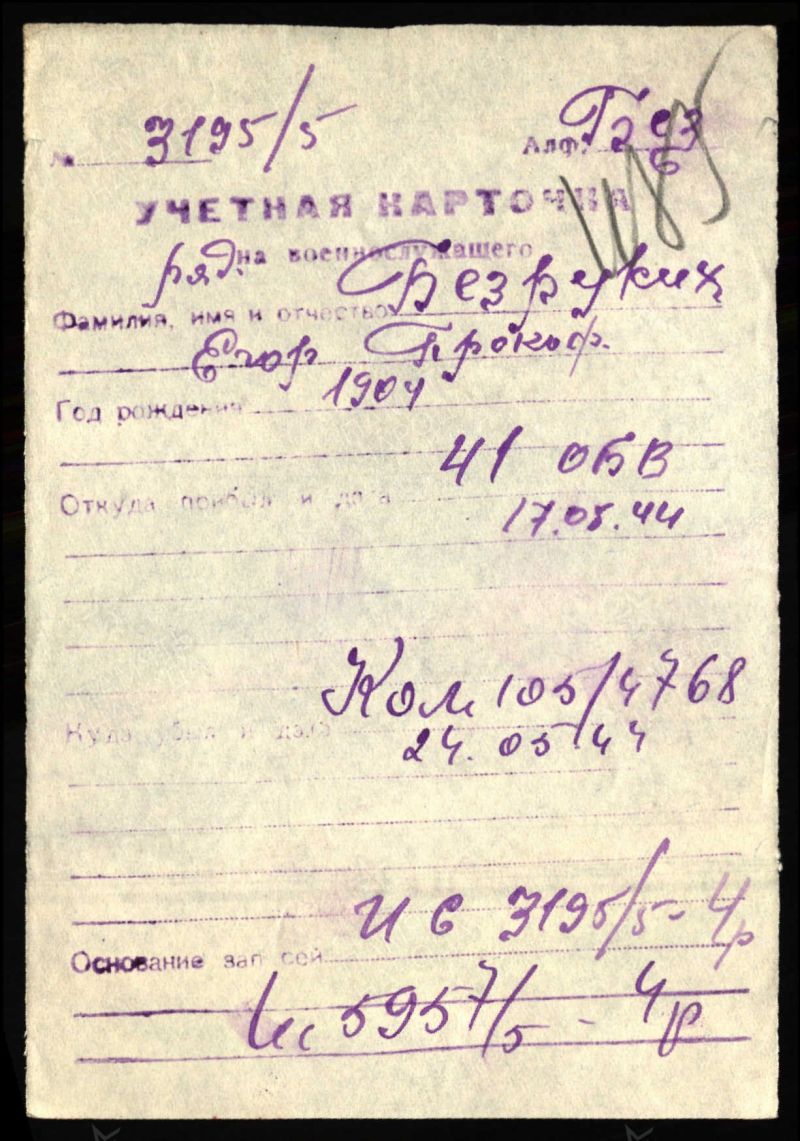 № 3195/5 Алф. Без
Е
УЧЕТНАЯ КАРТОЧКА
ряд. на военнослужащего
Фамилия, имя и отчество Безруких
Егор Прокоф.
Год рождения 1904
41 ОБВ
Откуда прибыл и дата
17.05.44
Ком 105/4768
Куда убыл и дата
24.05.44
ис 3195/5 - 4р
Основание записей
Ис 5957/5 - 4р